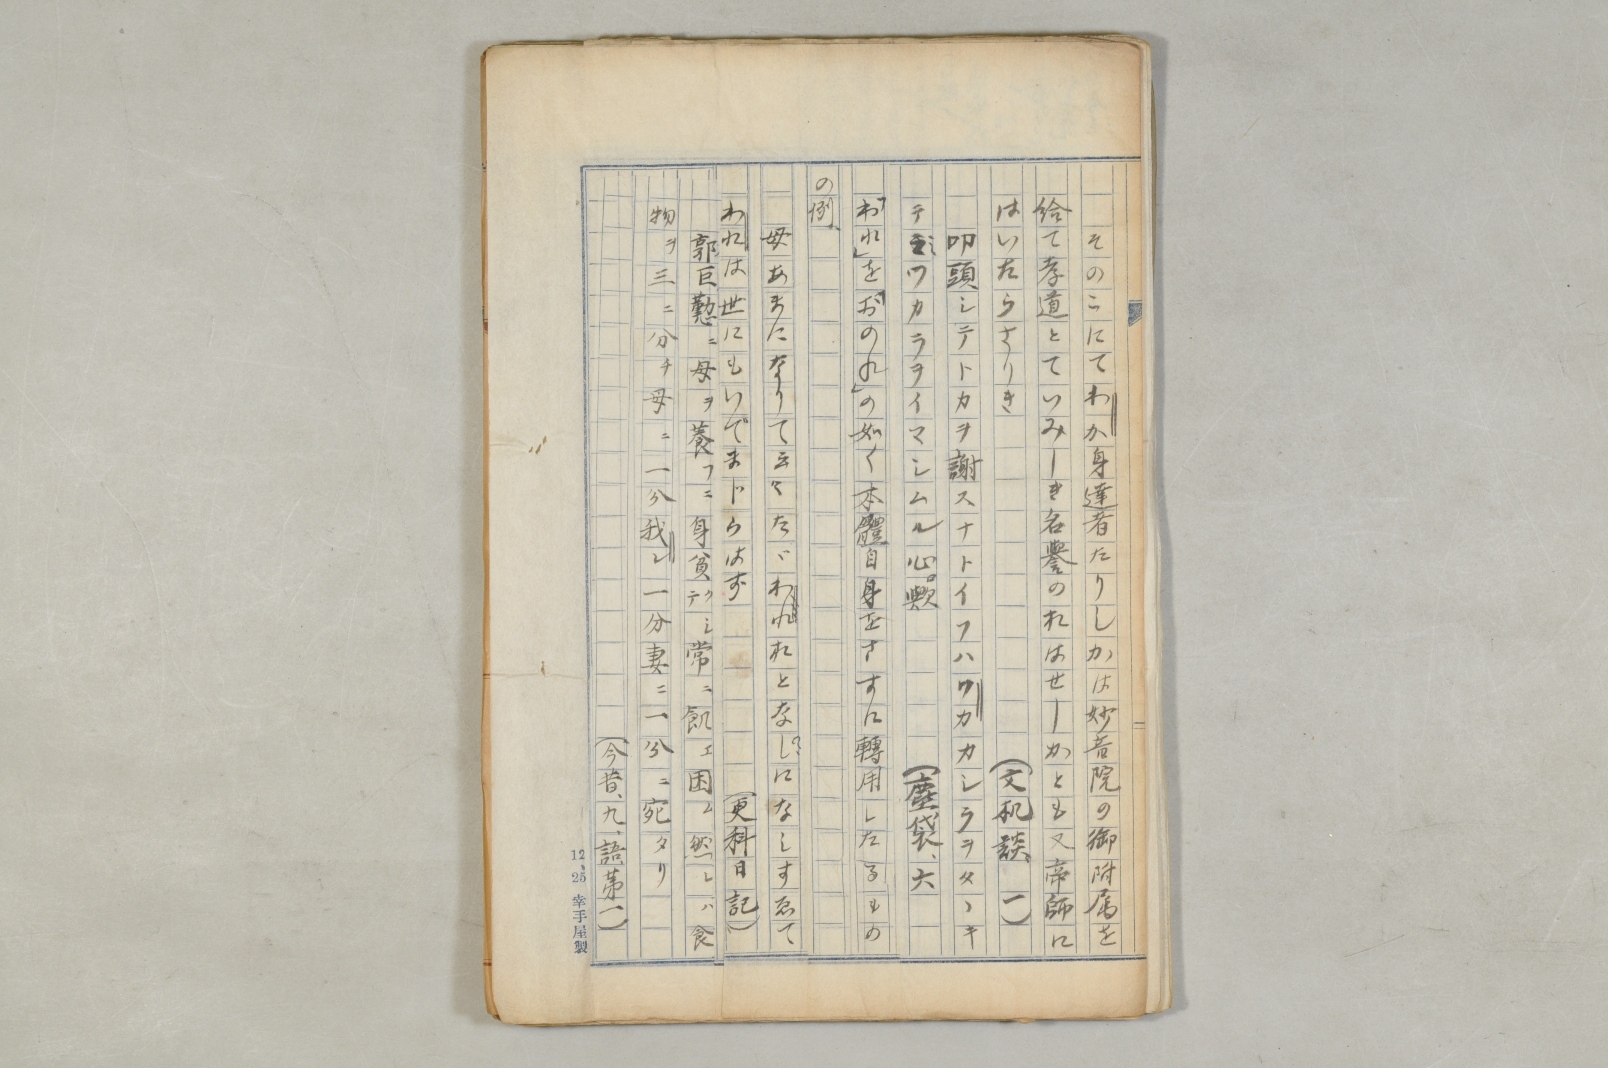 そのこにてわか身達者たりしかは妙音院の御附属を
給て孝道とていみしき名譽のれはせしかとも又帝師に
はいたらさりき
（文机談、一）
叩頭シテトカヲ謝スナトイフハワカカシラヲタヽキ
テミツカラヲイマシムル心歟
（塵袋、六
「われ」を「おのれ」の如く本體自身をさすに轉用したるもの
の例、
母あまになりて云々たゞわれれとなしになしすゑて
われは世にもいでまじらはず
（更科日記）
郭巨懃ニ母ヲ養フニ身貧クテシ常ニ飢エ困ム然レハ食
物ヲ三ニ分チ母ニ一分我レ一分妻ニ一分ニ宛タリ
（今昔、九、語第一）
12、25 幸手屋製